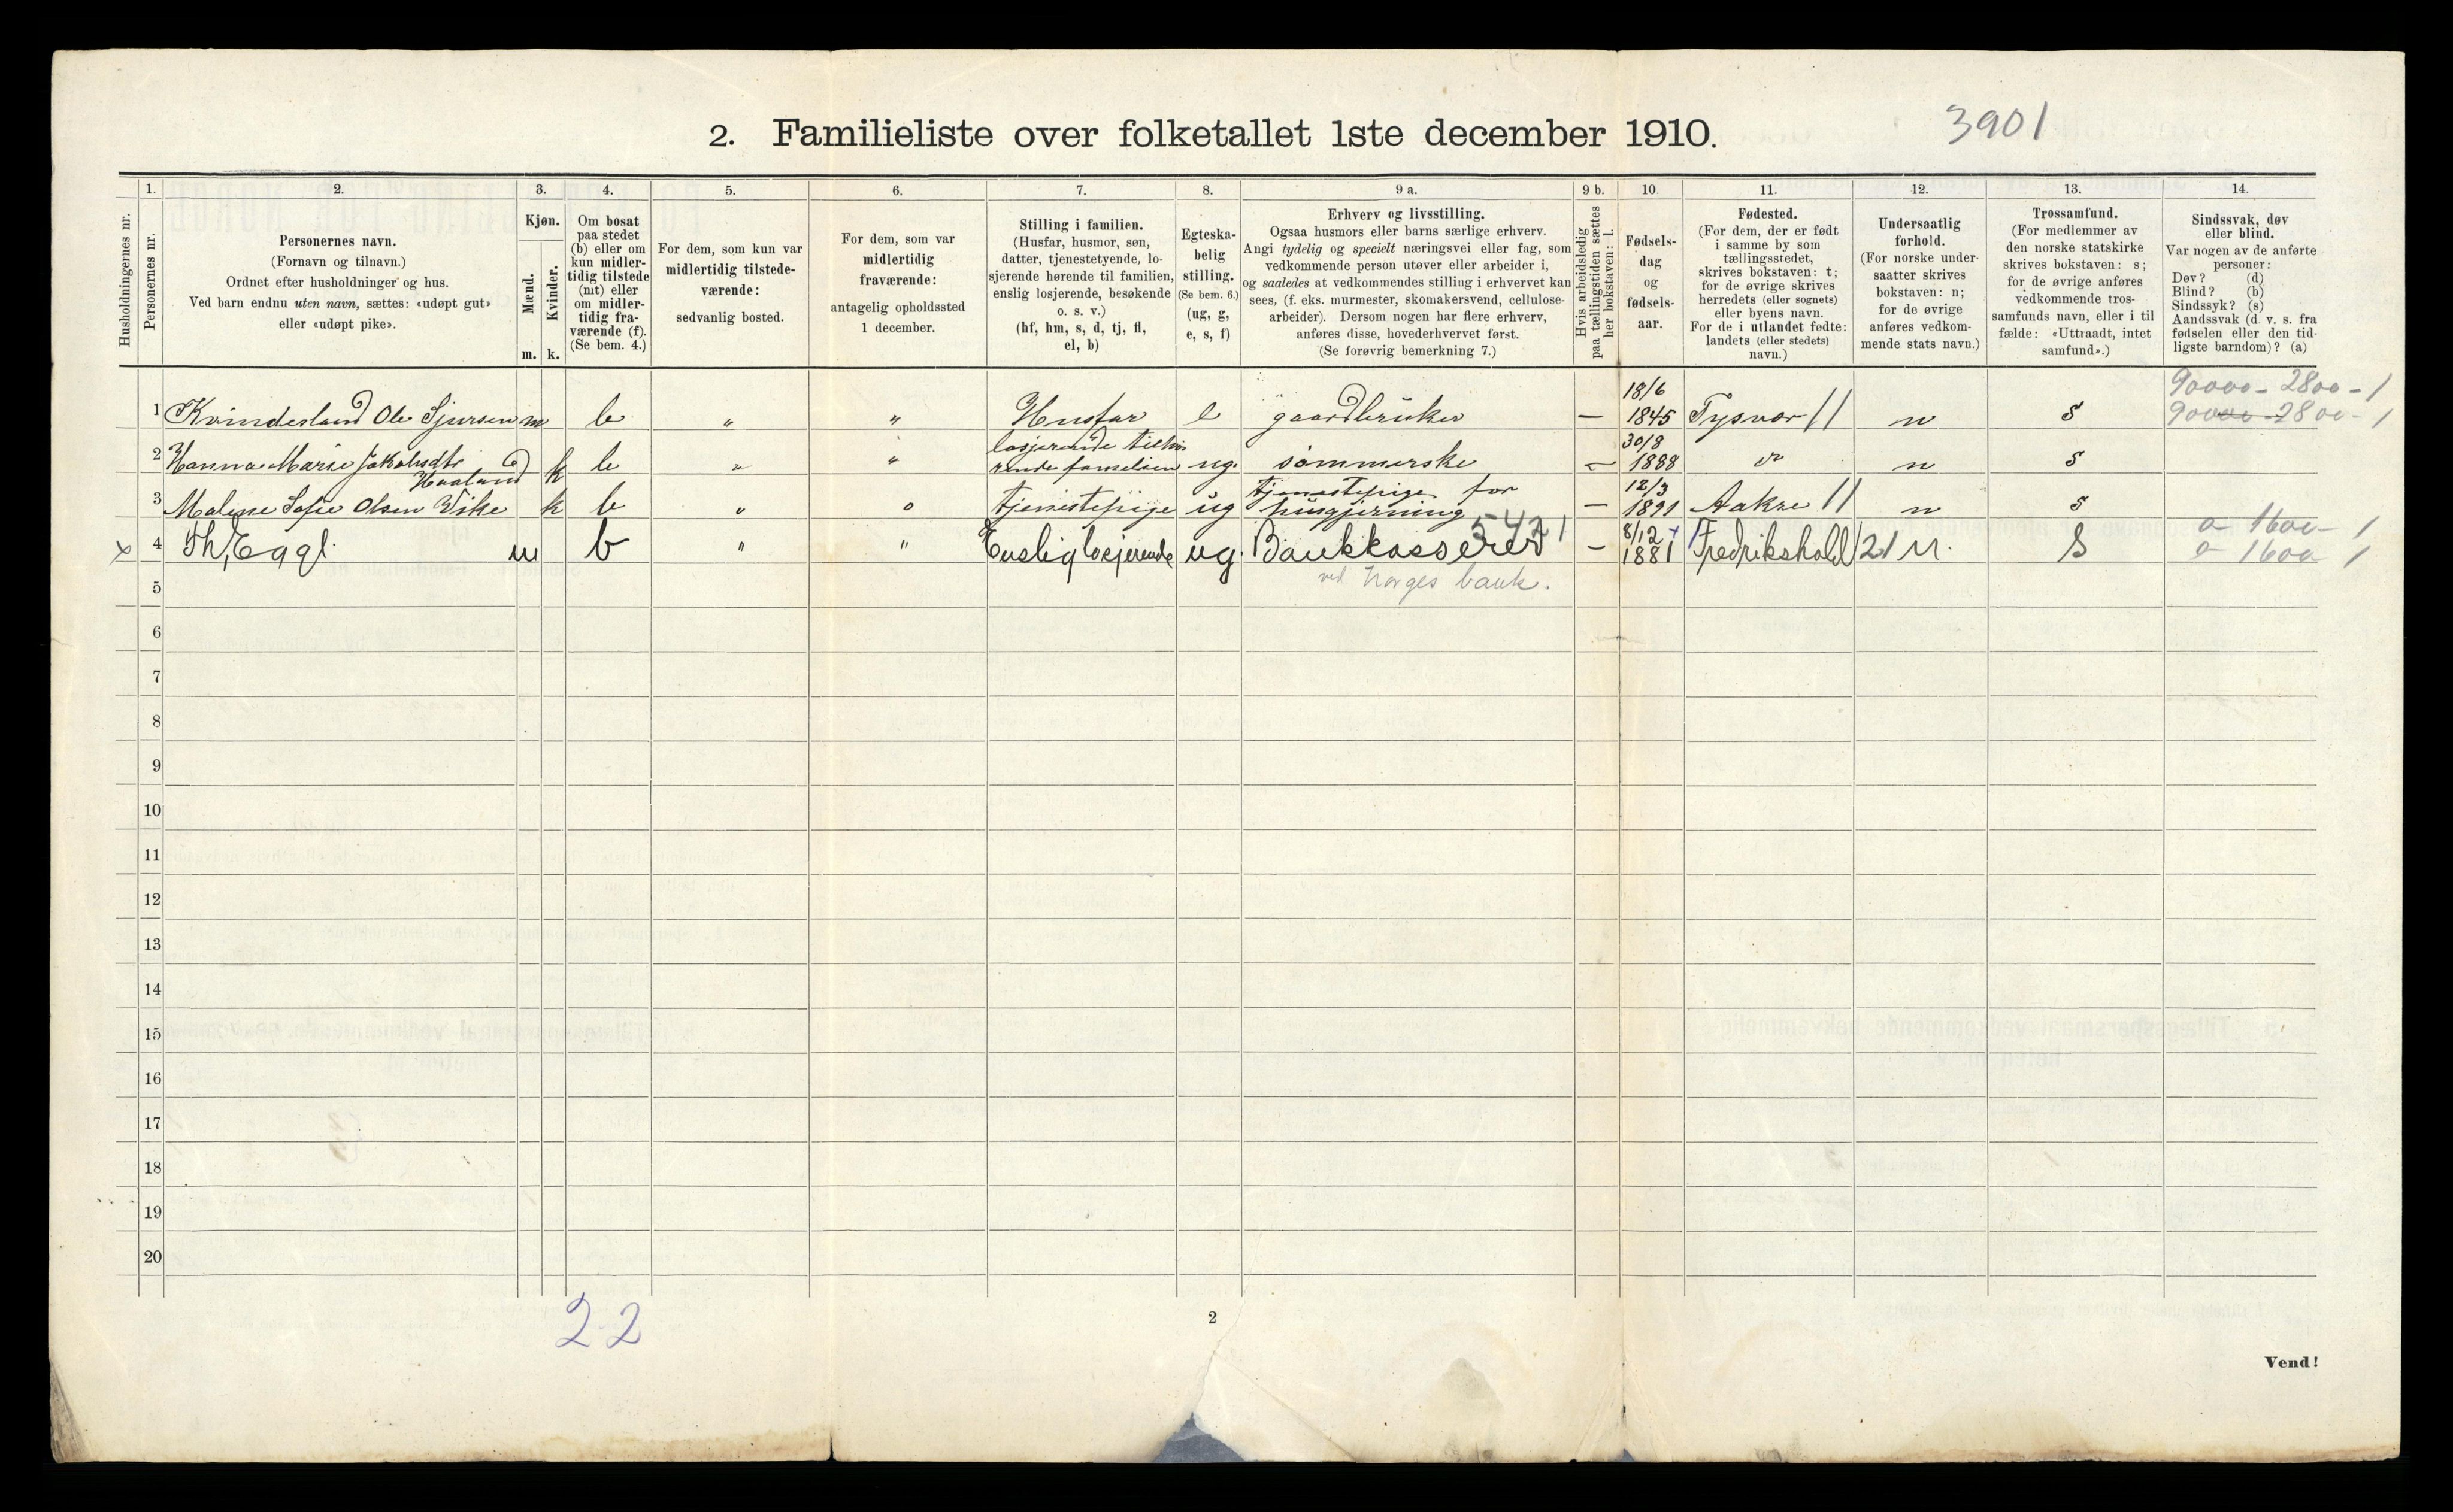 3901
2. Familieliste over folketallet 1ste december 1910.
Husholdningernes nr.
1.
Personernes nr.
2.
Personernes navn.
(Fornavn og tilnavn.)
Ordnet efter husholdninger og hus.
Ved barn endnu uten navn, sættes: «udøpt gut»
eller «udøpt pike».
3.
Kjøn.
Mænd.
Kvinder.
m. k.
4.
Om bosat
paa stedet
(b) eller om
kun midler-
tidig tilstede
(mt) eller
om midler-
tidig fra-
værende (f).
(Se bem. 4.)
5.
For dem, som kun var
midlertidig tilstede-
værende:
sedvanlig bosted.
6.
For dem, som var
midlertidig
fraværende:
antagelig opholdssted
1 december.
7.
Stilling i familien.
(Husfar, husmor, søn,
datter, tjenestetyende, lo-
sjerende hørende til familien,
enslig losjerende, besøkende
o. s. v.)
(hf, hm, s, d, tj, fl,
el, b)
8.
Egteska-
belig
stilling.
(Se bem. 6.)
(ug, g,
e, s, f)
9 a.
Erhverv og livsstilling.
Ogsaa husmors eller barns særlige erhverv.
Angi tydelig og specielt næringsvei eller fag, som
vedkommende person utøver eller arbeider i,
og saaledes at vedkommendes stilling i erhvervet kan
sees, (f. eks. murmester, skomakersvend, cellulose-
arbeider). Dersom nogen har flere erhverv,
anføres disse, hovederhvervet først.
(Se forøvrig bemerkning 7.)
9 b.
Hvis arbeidsledig
paa tællingstiden sættes
her bokstaven: l.
10.
Fødsels-
dag
og
fødsels-
aar.
11.
Fødested.
(For dem, der er født
i samme by som
tællingsstedet,
skrives bokstaven: t;
for de øvrige skrives
herredets (eller sognets)
eller byens navn.
For de i utlandet fødte:
landets (eller stedets)
navn.)
12.
Undersaatlig
forhold.
(For norske under-
saatter skrives
bokstaven: n;
for de øvrige
anføres vedkom-
mende stats navn.)
13.
Trossamfund.
(For medlemmer av
den norske statskirke
skrives bokstaven: s;
for de øvrige anføres
vedkommende tros-
samfunds navn, eller i til
fælde: «Uttraadt, intet
samfund».)
14.
Sindssvak, døv
eller blind.
Var nogen av de anførte
personer:
Døv? (d)
Blind? (b)
Sindssyk? (s)
Aandssvak (d. v. s. fra
fødselen eller den tid-
ligste barndom)? (a)
90000 - 2800 - 1
1 Kvindesland Ole Sjursen m b " " Husfar e gaardbruker — 18/6 1845 Tysvær // n s 90000 - 2800 - 1
2 Hanna Marie Jakobsdtr Haaland k b " " losjerende tilhørende familien ug. sømmerske — 30/8 1888 n s
3 Malene Sofie Olsen Vike k b " " tjenestepige ug tjenestepige for husgjerning — 12/3 1891 Aakre // n s
5421
a - 1600 - 1
x 4 Th. Eggl m b " " Enslig losjerende ug. Bankkasserer — 8/12 1881 Fredrikshald 21 n. s a - 1600 1
ved Norges bank.
5
6
7
8
9
10
11
12
13
14
15
16
17
18
19
20
2 2
2
Vend!